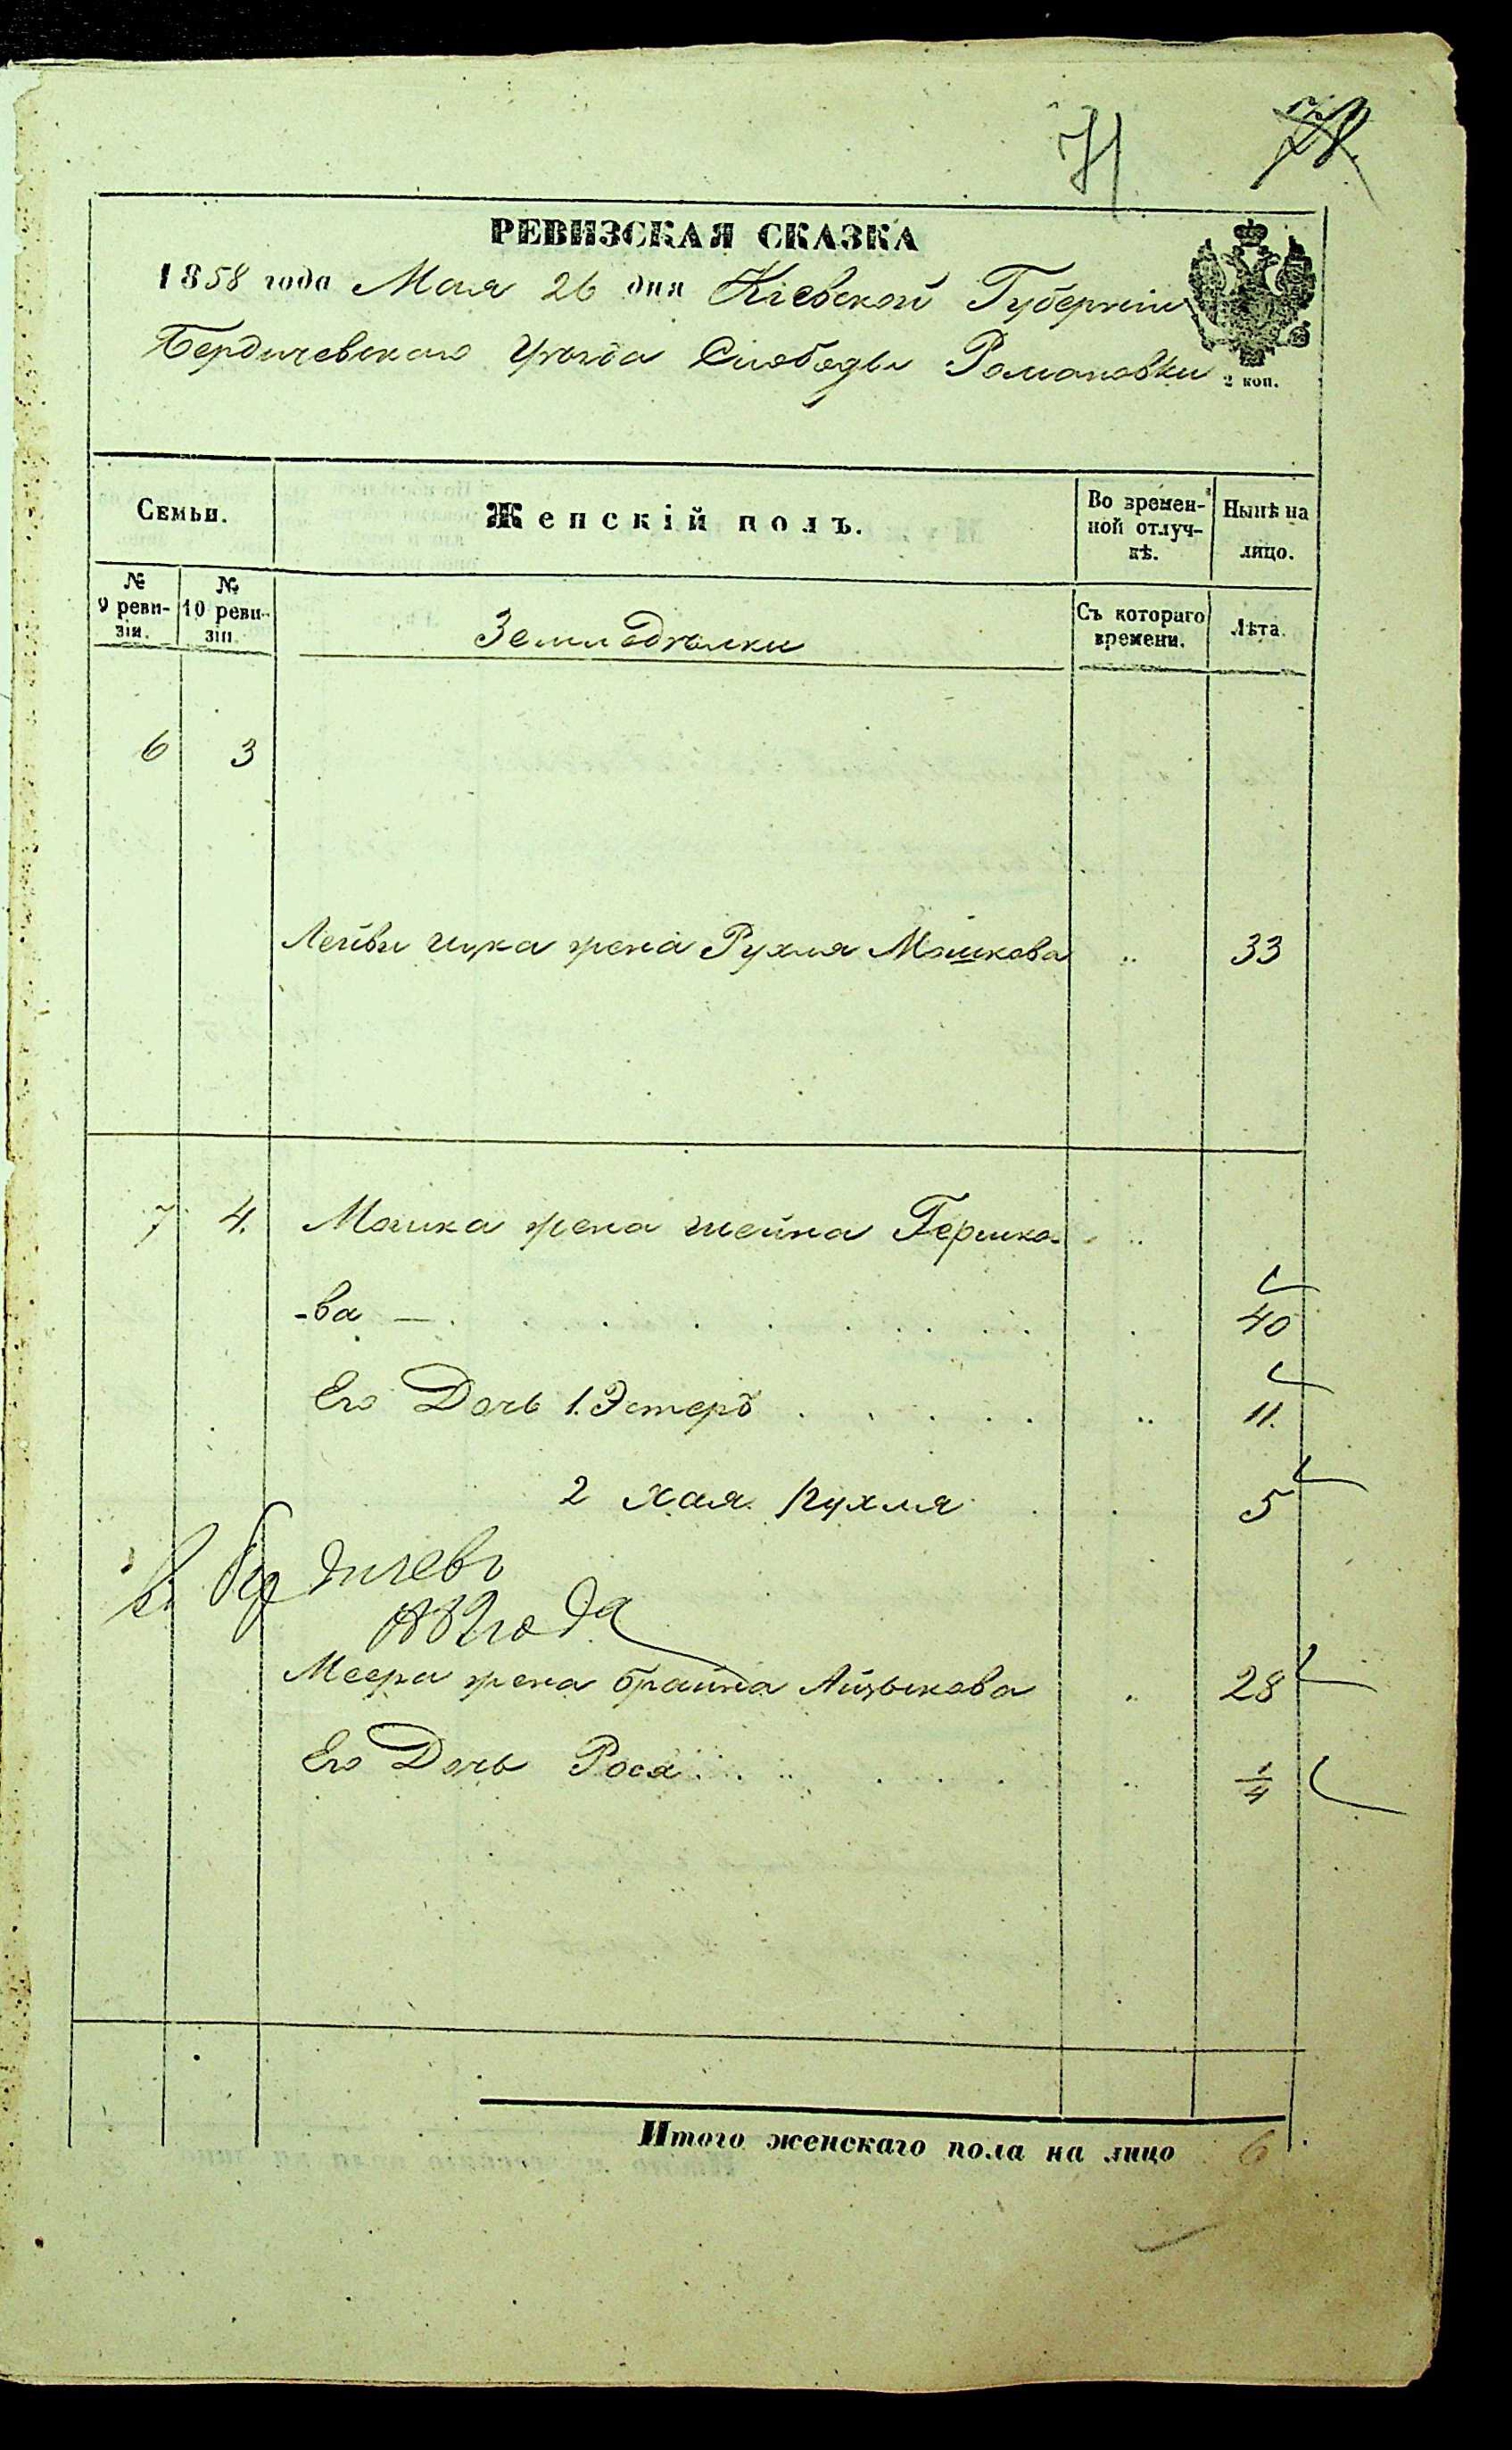 71
РЕВИЗСКАЯ СКАЗКА
1858 года Мая 26 дня Кіевской Губерніи
Бердичевскаго Уѣзда Слободы Романовки
2 коп.
Семьи.
Женскій полъ.
Во времен-
ной отлуч-
кѣ.
Нынѣ на
лицо.
№
9 реви-
зіи.
№
10 реви-
зіи.
Земледѣлки
Съ котораго
времени.
Лѣта.
6 3
Лейви жена Рухля Мошкова 33
7 4. Мошка жена Шейна Гершко-
-ва — 40
Его Дочь 1. Эстеръ 11.
2 Хая Рухля 5
Меера жена Брайна Айзыкова 28
Его Дочь Рося 1/4
Итого женскаго пола на лицо 6